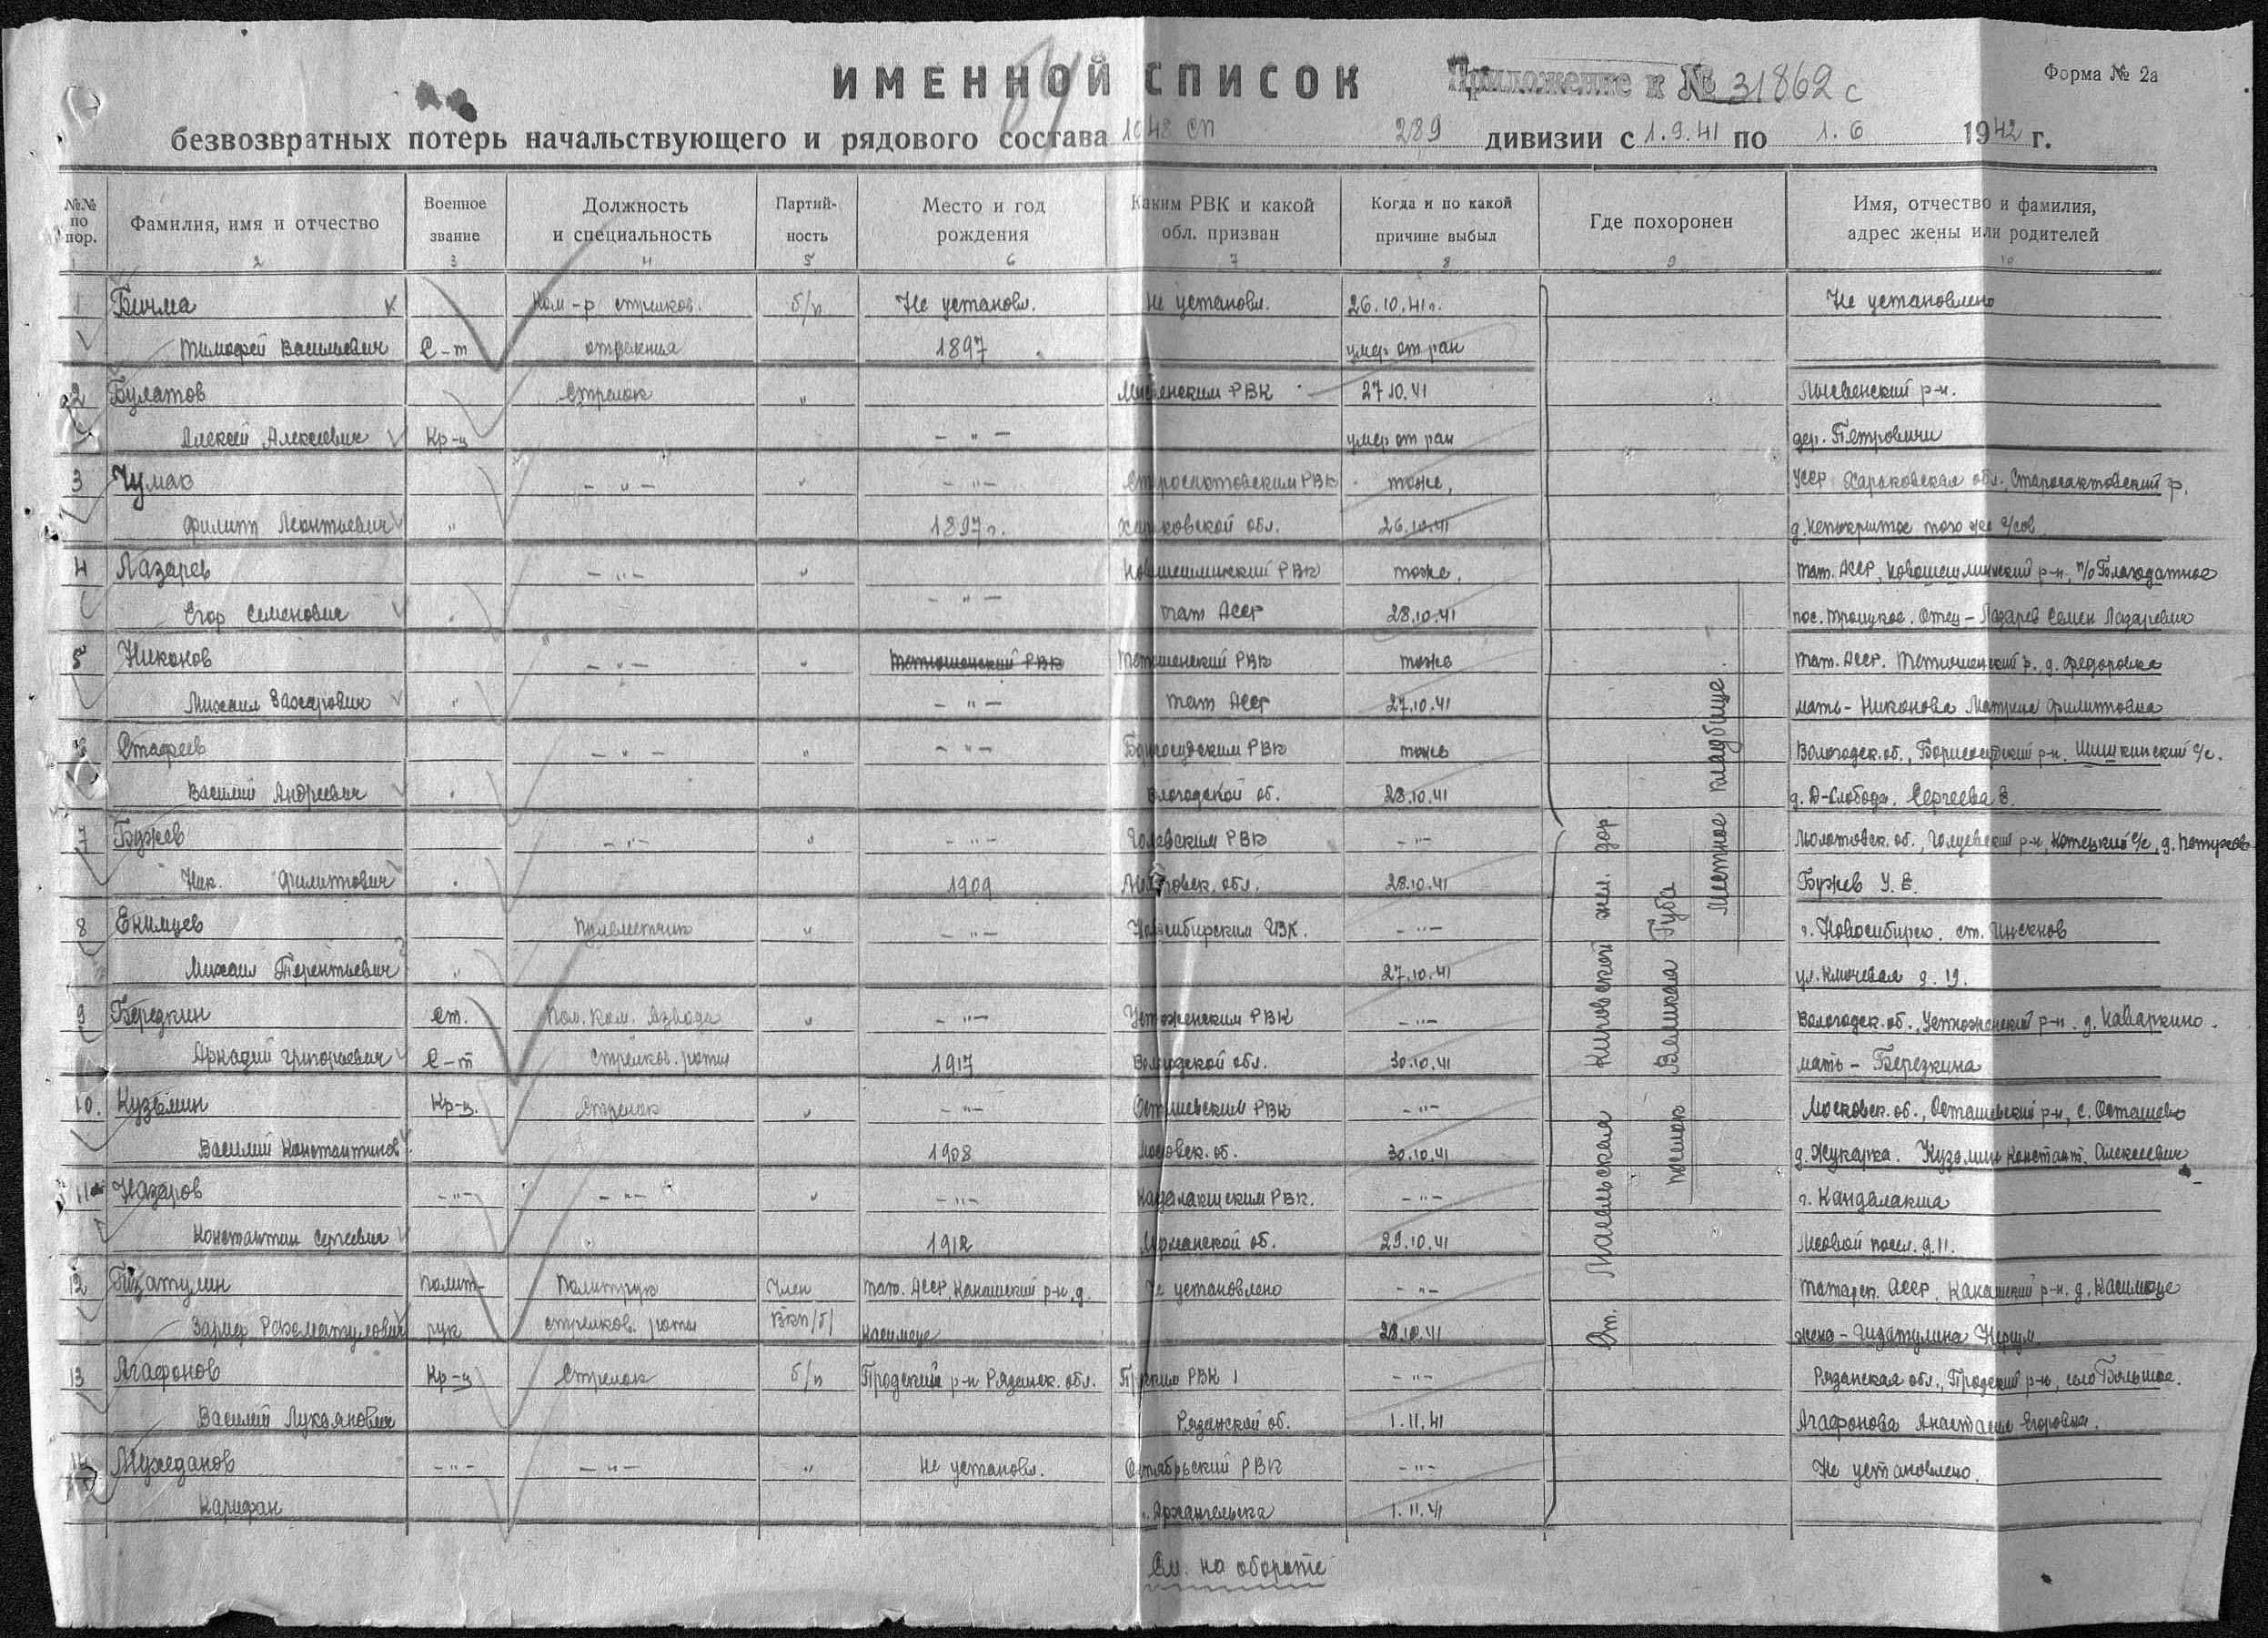 ИМЕННОЙ СПИСОК
Приложение к № 31862 с
Форма № 2а
безвозвратных потерь начальствующего и рядового состава 1048 сп 289 дивизии с 1.9.41 по 1.6 1942 г.
№№ по пор. Фамилия, имя и отчество Военное звание Должность и специальность Партий-ность Место и год рождения Каким РВК и какой обл. призван Когда и по какой причине выбыл Где похоронен Имя, отчество и фамилия, адрес жены или родителей
1 2 3 4 5 6 7 8 9 10
1 Бичма Ком-р стрелков. б/п Не установл. Не установл. 26.10.41г. Не установлено
Тимофей Васильевич С-т отделения 1897 умер от ран
2 Булатов Стрелок " РВК 27.10.41 р-н.
Алексей Алексеевич Кр-ц - " - умер от ран дер. Петровичи
3 Чумак - " - " - " - РВК тоже, УССР Харьковская обл.,
Филипп Леонтьевич " 1897г. Харьковской обл. 26.10.41 того же с/сов
4 Лазарев - " - " Новошешминский РВК тоже, Тат. АССР, Новошешминский р-н, п/о Благодатное
Егор Семенович " - " - Тат АССР 28.10.41 пос. Троицкое. Отец - Лазарев Семен Лазаревич
5 Никонов - " - " Тетюшенский РВК Тетюшенский РВК тоже Тат. АССР. Тетюшенский р., д. Федоровка
Михаил Захарович " - " - Тат АССР 27.10.41 мать - Никонова Матрена Филипповна
6 Стафеев - " - " - " - Борисоудским РВК тоже Вологодск. об., р-н. Шишкинский с/с.
Василий Андреевич " Вологодской об. 28.10.41 д. Д-Слобода. Сергеева Е.
7 Бужев - " - " - " - РВК - " - Молотовск. об., р-н, с/с, д. Петухово
Ник. Филиппович " 1909 обл. 28.10.41 Бужев У. Е.
8 Екимцев Пулеметчик " - " - Новосибирским ГВК. - " - г. Новосибирск. ст.
Михаил Терентьевич " 27.10.41 ул. Ключевая д. 19.
9 Березкин Ст. Пом. ком. взвода " - " - Устюженским РВК - " - Вологодск. об., Устюженский р-н. д.
Аркадий Григорьевич С-т стрелков. роты 1917 Вологодской обл. 30.10.41 мать - Березкина
10. Кузьмин Кр-ц. Стрелок " - " - Осташевским РВК - " - Московск. об., Осташевский р-н, с. Осташево
Василий Константинов 1908 Московск. об. 30.10.41 д. Жукарка. Кузьмин Констант. Алексеевич
11 Назаров - " - - " - " - " - Кандалакшским РВК. - " - г. Кандалакша
Константин Сергеевич 1912 Мурманской об. 29.10.41 посел. д. 11.
12 Полит- Политрук Член Тат. АССР, Канашский р-н, д. Не установлено - " - Татарск. АССР, Канашский р-н. д.
Зариф рук стрелков. роты ВКП/б/ 28.10.41 жена - Гизатулина
13 Агафонов Кр-ц Стрелок б/п р-н Рязанск. обл. РВК - " - Рязанская обл., р-н, село
Василий Лукьянович Рязанской об. 1.11.41 Агафонова Анастасия Егоровна.
14 Мухеданов - " - - " - " Не установл. Октябрьский РВК - " - Не установлено.
Карифан г. Архангельска 1.11.41
Ст. Масельская Кировской жел. дор
поселок Великая Губа
Местное кладбище
См. на обороте